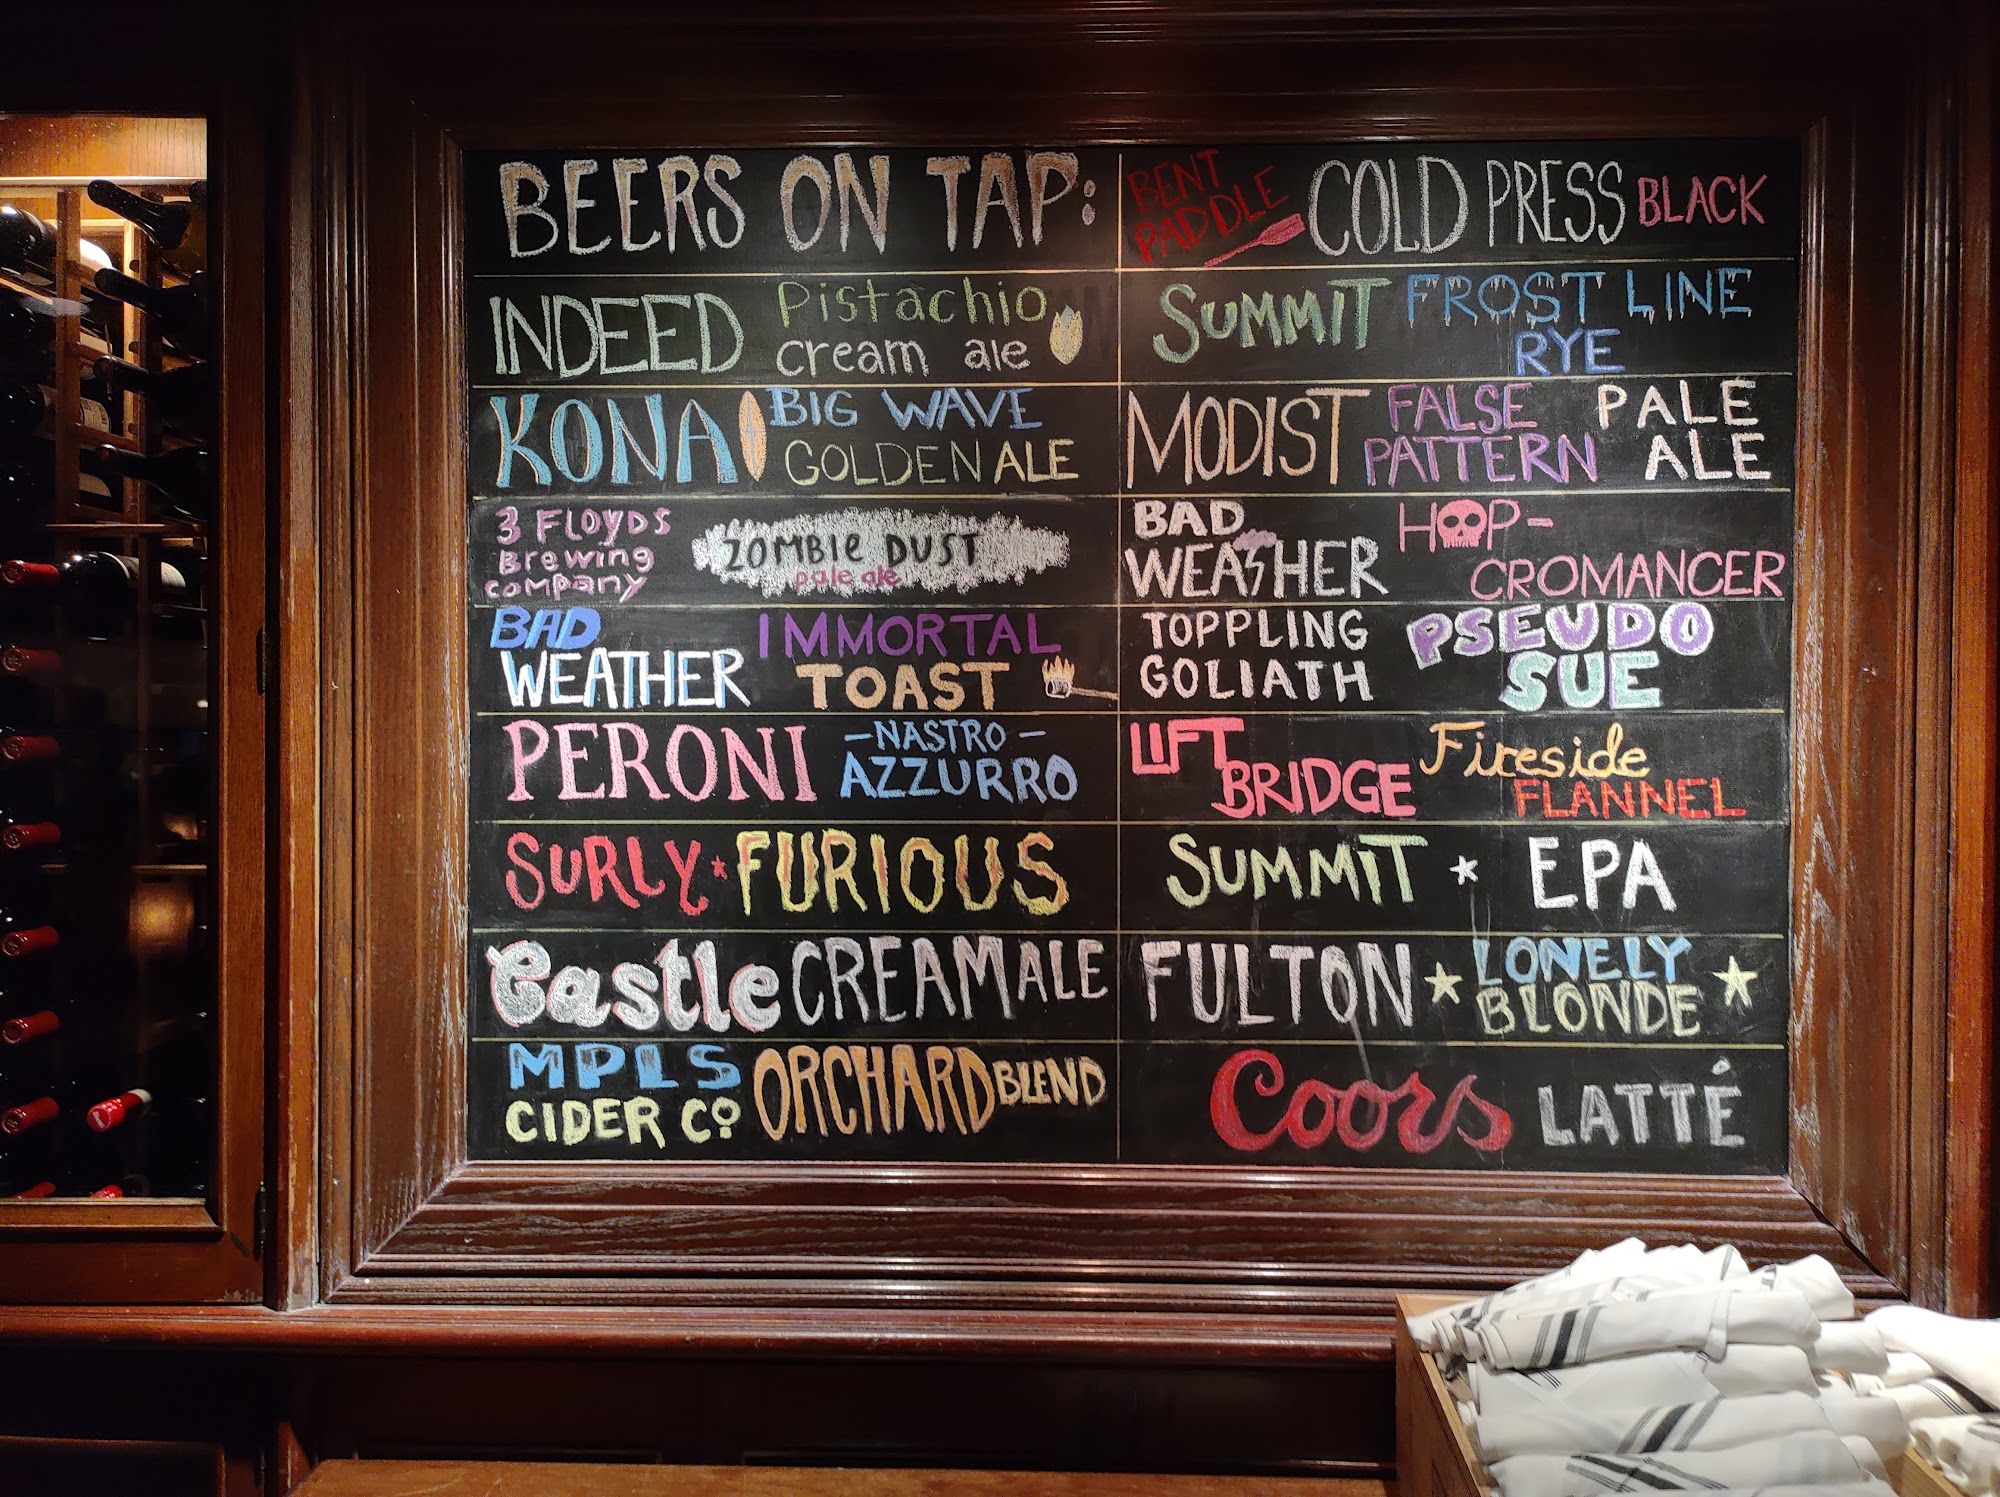 BEERS ON TAP:
INDEED Pistachio
cream ale
KONA BIG WAVE
GOLDEN ALE
3 FLOYDS
Brewing
company
ZOMBIE DUST
pale ale
BAD
WEATHER
IMMORTAL
TOAST
PERONI -NASTRO-
AZZURRO
SURLY * FURIOUS
Castle CREAM ALE
MPLS
CIDER CO
ORCHARD BLEND
BENT
PADDLE
COLD PRESS BLACK
SUMMIT FROST LINE
RYE
MODIST FALSE
PATTERN
PALE
ALE
BAD
WEATHER
HOP-
CROMANCER
TOPPLING
GOLIATH
PSEUDO
SUE
LIFT
BRIDGE
Fireside
FLANNEL
SUMMIT * EPA
FULTON LONELY
BLONDE
Coors LATTÉ